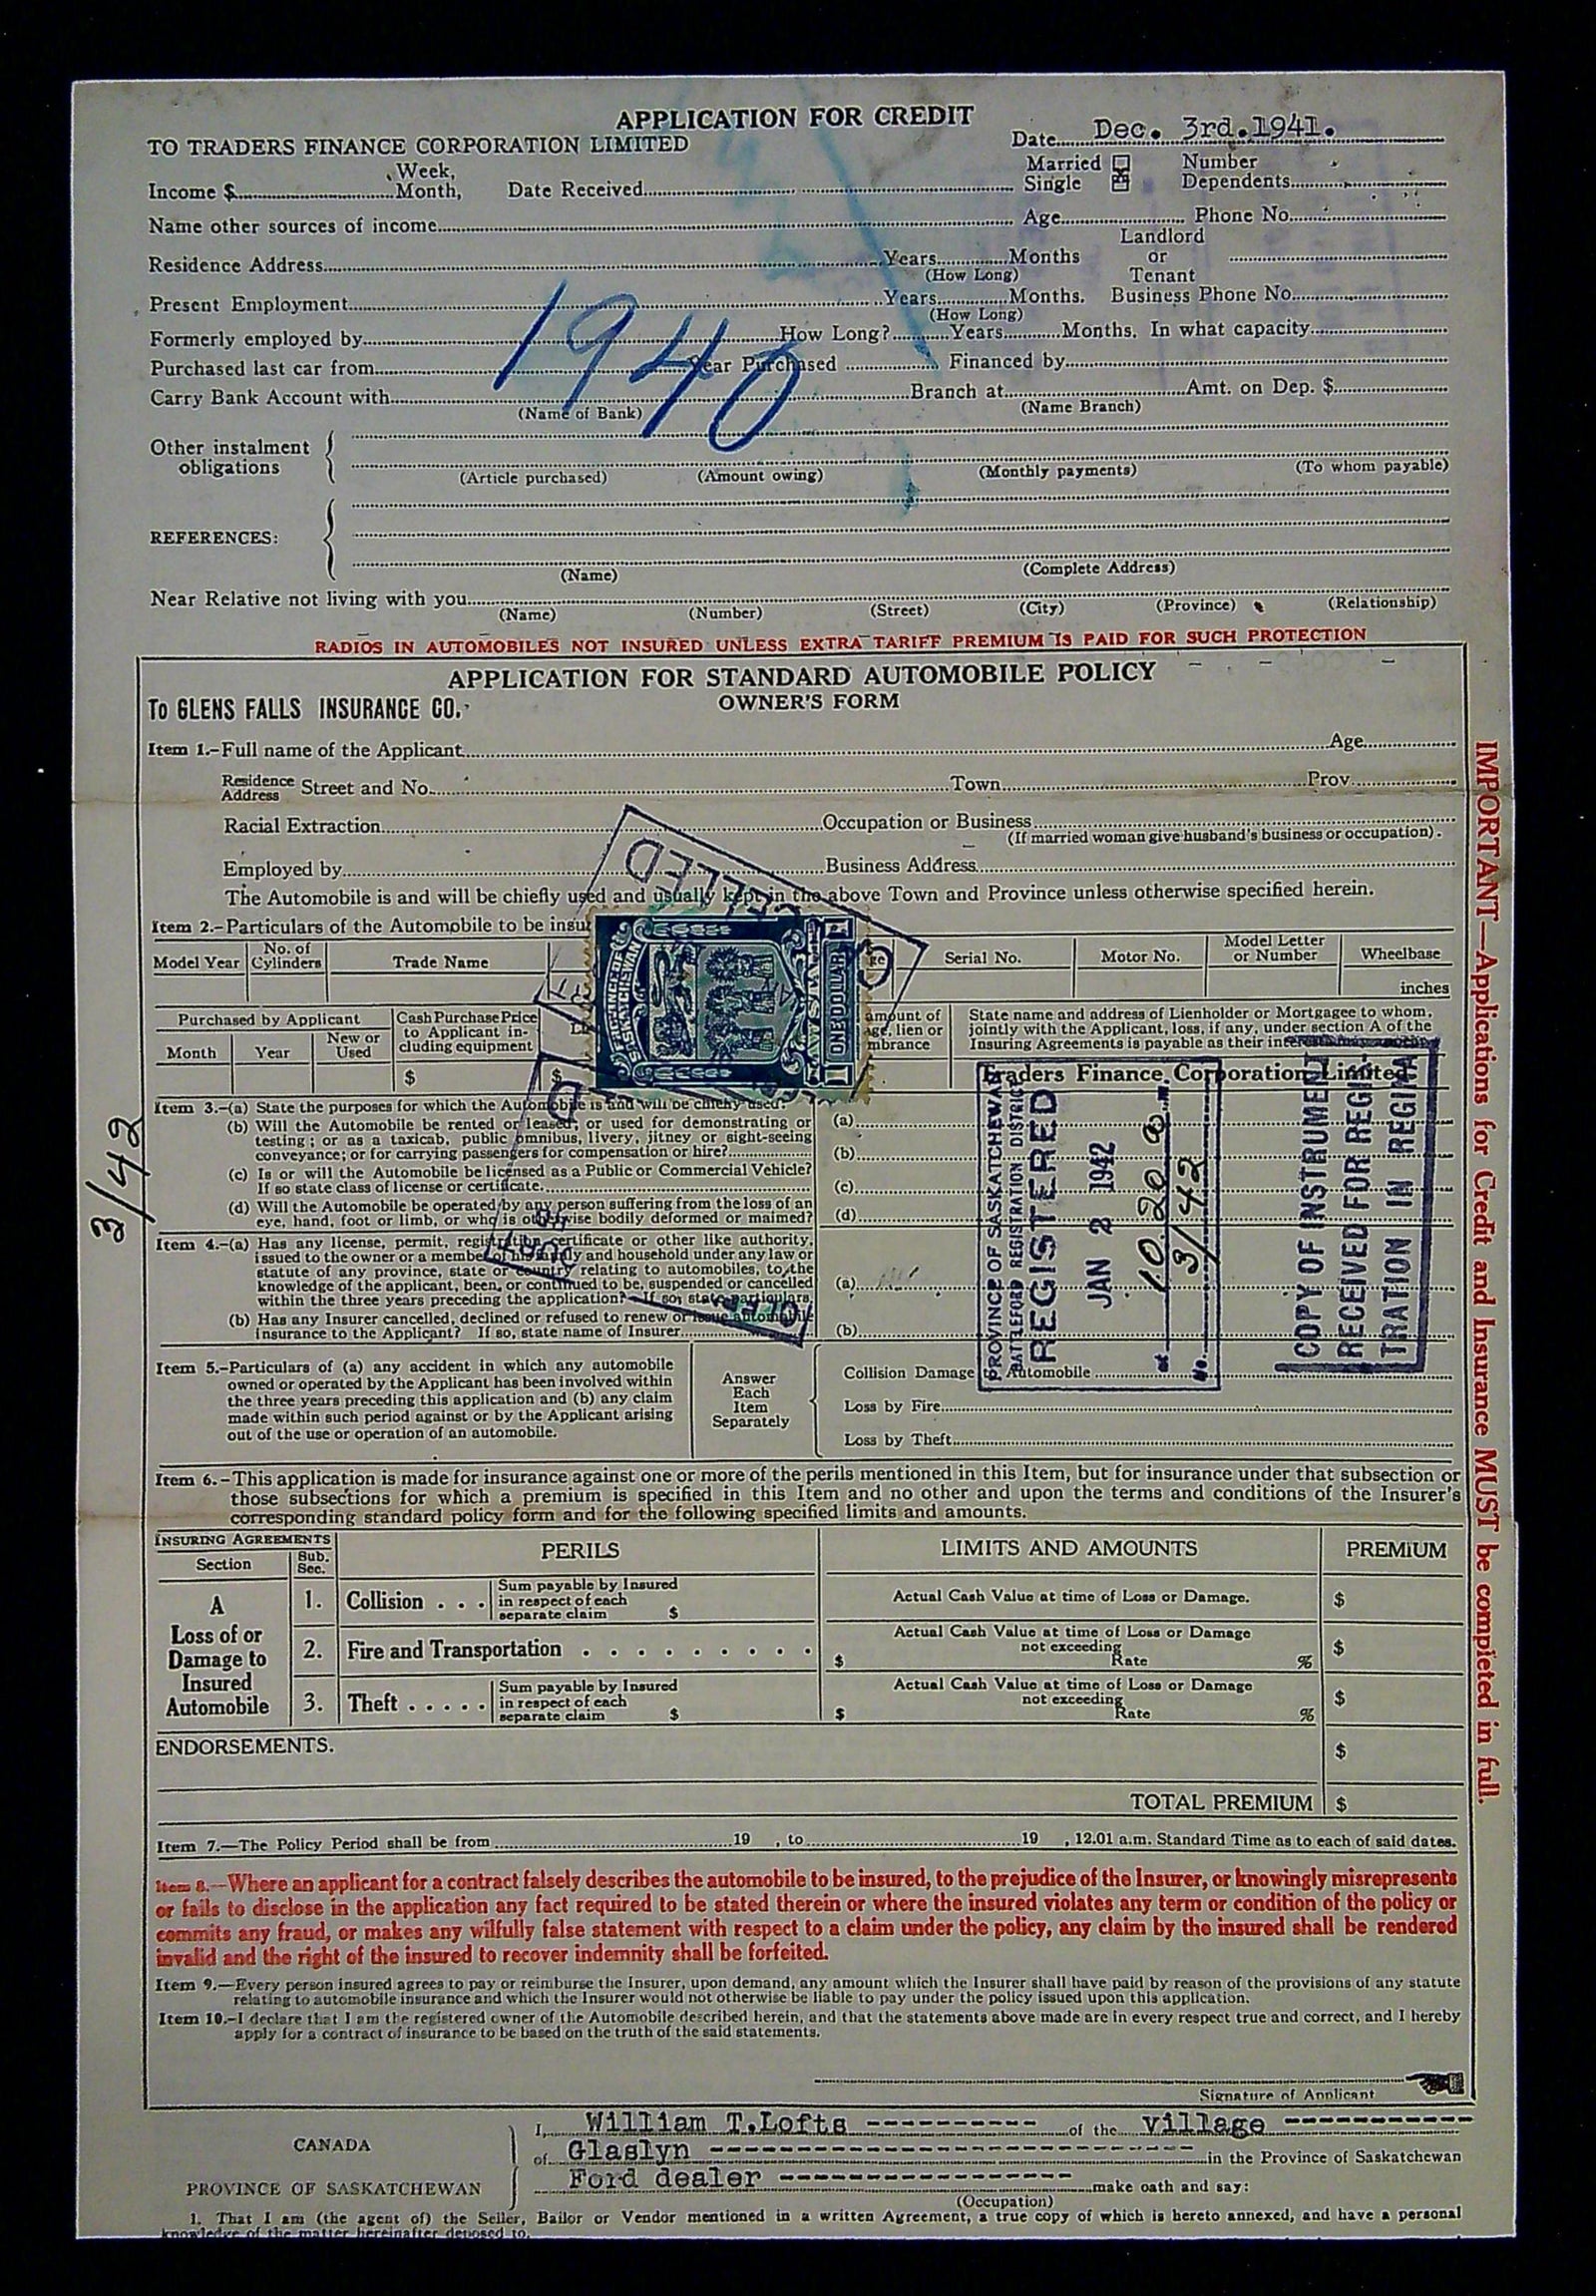 APPLICATION FOR CREDIT
TO TRADERS FINANCE CORPORATION LIMITED
Date Dec. 3rd.1941.
Income $ Week, Month, Date Received Married Single Number Dependents
Name other sources of income Age Phone No.
Residence Address Years Months (How Long) Landlord or Tenant
Present Employment Years Months. (How Long) Business Phone No.
Formerly employed by How Long? Years Months. In what capacity
Purchased last car from Year Purchased Financed by
Carry Bank Account with (Name of Bank) Branch at (Name Branch) Amt. on Dep. $
1940
Other instalment obligations
(Article purchased) (Amount owing) (Monthly payments) (To whom payable)
REFERENCES:
(Name) (Complete Address)
Near Relative not living with you
(Name) (Number) (Street) (City) (Province) (Relationship)
RADIOS IN AUTOMOBILES NOT INSURED UNLESS EXTRA TARIFF PREMIUM IS PAID FOR SUCH PROTECTION
APPLICATION FOR STANDARD AUTOMOBILE POLICY
To GLENS FALLS INSURANCE CO.
OWNER'S FORM
Item 1.-Full name of the Applicant Age
Residence Address Street and No. Town Prov.
Racial Extraction Occupation or Business
(If married woman give husband's business or occupation).
Employed by Business Address
The Automobile is and will be chiefly used and usually kept in the above Town and Province unless otherwise specified herein.
Item 2.-Particulars of the Automobile to be insu
Model Year No. of Cylinders Trade Name Serial No. Motor No. Model Letter or Number Wheelbase
inches
PROVINCE OF SASKATCHEWAN
LAW STAMP
ONE DOLLAR
Purchased by Applicant
Month Year New or Used
Cash Purchase Price to Applicant including equipment
$ $
amount of
lien or
mbrance
State name and address of Lienholder or Mortgagee to whom,
jointly with the Applicant, loss, if any, under section A of the
Insuring Agreements is payable as their
Traders Finance Corporation Limited
Item 3.-(a) State the purposes for which the Automobile is and will be chiefly used? (a)
(b) Will the Automobile be rented or leased, or used for demonstrating or
testing; or as a taxicab, public omnibus, livery, jitney or sight-seeing
conveyance; or for carrying passengers for compensation or hire? (b)
(c) Is or will the Automobile be licensed as a Public or Commercial Vehicle?
If so state class of license or certificate. (c)
(d) Will the Automobile be operated by any person suffering from the loss of an
eye, hand, foot or limb, or who is otherwise bodily deformed or maimed? (d)
Item 4.-(a) Has any license, permit, registration certificate or other like authority,
issued to the owner or a member of his family and household under any law or
statute of any province, state or country relating to automobiles, to the
knowledge of the applicant, been, or continued to be, suspended or cancelled
within the three years preceding the application? If so, state particulars. (a)
(b) Has any Insurer cancelled, declined or refused to renew or issue automobile
insurance to the Applicant? If so, state name of Insurer (b)
PROVINCE OF SASKATCHEWAN
BATTLEFORD REGISTRATION DISTRICT
REGISTERED
JAN 2 1942
at 10 20 a m
No. 3/42
COPY OF INSTRUMENT
RECEIVED FOR REGIS-
TRATION IN REGINA
3/42
Item 5.-Particulars of (a) any accident in which any automobile
owned or operated by the Applicant has been involved within
the three years preceding this application and (b) any claim
made within such period against or by the Applicant arising
out of the use or operation of an automobile.
Answer Each Item Separately
Collision Damage Automobile
Loss by Fire
Loss by Theft
Item 6.-This application is made for insurance against one or more of the perils mentioned in this Item, but for insurance under that subsection or
those subsections for which a premium is specified in this Item and no other and upon the terms and conditions of the Insurer's
corresponding standard policy form and for the following specified limits and amounts.
INSURING AGREEMENTS
Section Sub. Sec. PERILS LIMITS AND AMOUNTS PREMIUM
A Loss of or Damage to Insured Automobile
1. Collision . . . Sum payable by Insured in respect of each separate claim $ Actual Cash Value at time of Loss or Damage. $
2. Fire and Transportation . . . . . . . . . $ Actual Cash Value at time of Loss or Damage not exceeding Rate % $
3. Theft . . . . . Sum payable by Insured in respect of each separate claim $ $ Actual Cash Value at time of Loss or Damage not exceeding Rate % $
ENDORSEMENTS. $
TOTAL PREMIUM $
Item 7.—The Policy Period shall be from 19 , to 19 , 12.01 a.m. Standard Time as to each of said dates.
Item 8.—Where an applicant for a contract falsely describes the automobile to be insured, to the prejudice of the Insurer, or knowingly misrepresents
or fails to disclose in the application any fact required to be stated therein or where the insured violates any term or condition of the policy or
commits any fraud, or makes any wilfully false statement with respect to a claim under the policy, any claim by the insured shall be rendered
invalid and the right of the insured to recover indemnity shall be forfeited.
Item 9.—Every person insured agrees to pay or reimburse the Insurer, upon demand, any amount which the Insurer shall have paid by reason of the provisions of any statute
relating to automobile insurance and which the Insurer would not otherwise be liable to pay under the policy issued upon this application.
Item 10.-I declare that I am the registered owner of the Automobile described herein, and that the statements above made are in every respect true and correct, and I hereby
apply for a contract of insurance to be based on the truth of the said statements.
Signature of Applicant
IMPORTANT—Applications for Credit and Insurance MUST be completed in full.
CANADA
PROVINCE OF SASKATCHEWAN
I, William T.Lofts of the village
of Glaslyn in the Province of Saskatchewan
Ford dealer make oath and say:
(Occupation)
1. That I am (the agent of) the Seller, Bailor or Vendor mentioned in a written Agreement, a true copy of which is hereto annexed, and have a personal
knowledge of the matter hereinafter deposed to.